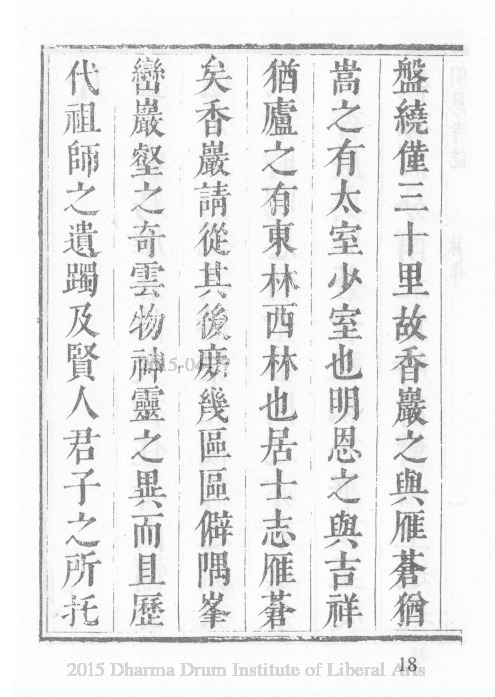 盤繞僅三十里故香巖之與雁蒼猶
嵩之有太室少室也明恩之與吉祥
猶廬之有東林西林也居士志雁蒼
矣香巖請從其後庶幾區區僻隅峯
巒巖壑之奇雲物神靈之異而且歷
代祖師之遺躅及賢人君子之所托
18
2015 Dharma Drum Institute of Liberal Arts